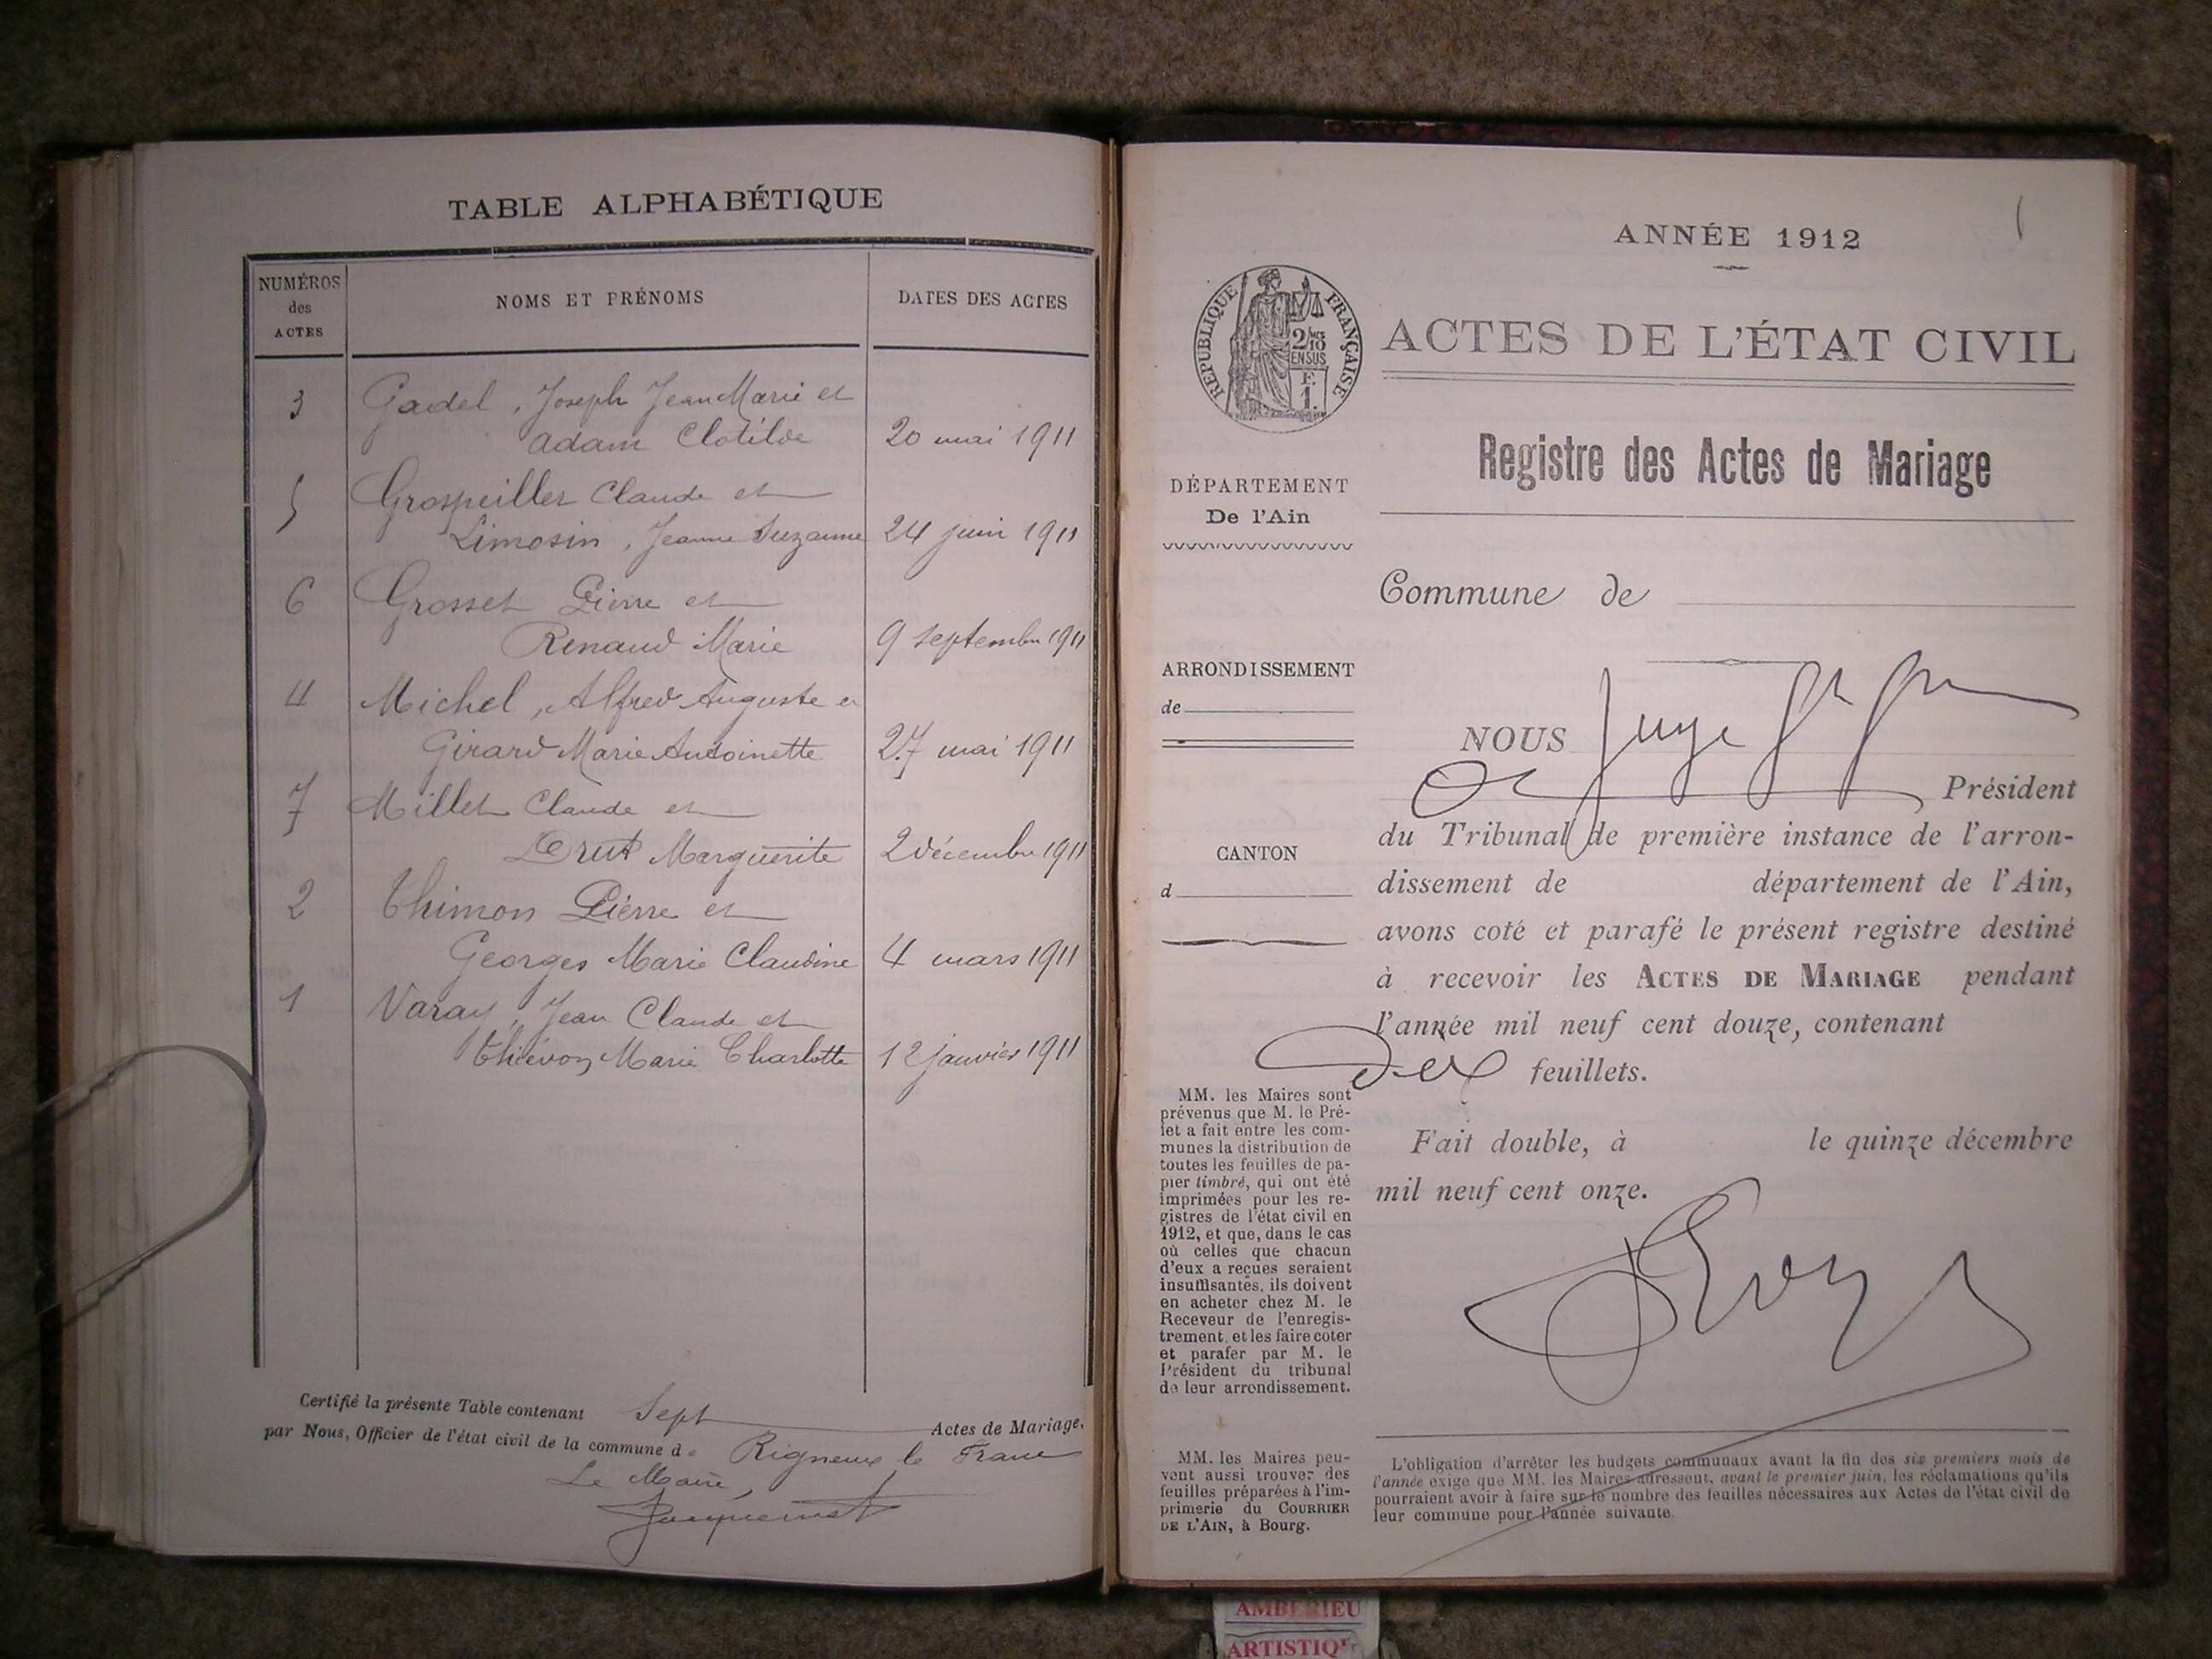 TABLE ALPHABÉTIQUE
NUMÉROS
des
ACTES
NOMS ET PRÉNOMS
DATES DES ACTES
3
Gadel, Joseph Jean Marie et
Adam Clotilde
20 mai 1911
5
Grospeiller Claude et
Limosin, Jeanne Suzanne
24 juin 1911
6
Grosset Pierre et
Renaud Marie
9 septembre 1911
4
Michel, Alfred Auguste et
Girard Marie Antoinette
27 mai 1911
7
Millet Claude et
Drut Marguerite
2 décembre 1911
2
Thimon Pierre et
Georges Marie Claudine
4 mars 1911
1
Varay, Jean Claude et
Thiévoz Marie Charlotte
12 janvier 1911
Certifié la présente Table contenant Sept Actes de Mariage,
par Nous, Officier de l'état civil de la commune d e Rigneux le Franc
Le Maire,
1
ANNÉE 1912
RÉPUBLIQUE FRANÇAISE
2/10
EN SUS
F.
1.
ACTES DE L'ÉTAT CIVIL
Registre des Actes de Mariage
DÉPARTEMENT
De l'Ain
ARRONDISSEMENT
de
CANTON
d
Commune de
NOUS Juge
Président
du Tribunal de première instance de l'arron-
dissement de département de l'Ain,
avons coté et parafé le présent registre destiné
à recevoir les ACTES DE MARIAGE pendant
l'année mil neuf cent douze, contenant
feuillets.
Fait double, à le quinze décembre
mil neuf cent onze.
MM. les Maires sont
prévenus que M. le Pré-
fet a fait entre les com-
munes la distribution de
toutes les feuilles de pa-
pier timbré, qui ont été
imprimées pour les re-
gistres de l'état civil en
1912, et que, dans le cas
où celles que chacun
d'eux a reçues seraient
insuffisantes, ils doivent
en acheter chez M. le
Receveur de l'enregis-
trement, et les faire coter
et parafer par M. le
Président du tribunal
de leur arrondissement.
MM. les Maires peu-
vent aussi trouver des
feuilles préparées à l'im-
primerie du COURRIER
DE L'AIN, à Bourg.
L'obligation d'arrêter les budgets communaux avant la fin des six premiers mois de
l'année exige que MM. les Maires adressent, avant le premier juin, les réclamations qu'ils
pourraient avoir à faire sur le nombre des feuilles nécessaires aux Actes de l'état civil de
leur commune pour l'année suivante.
AMBERIEU
ARTISTIQ